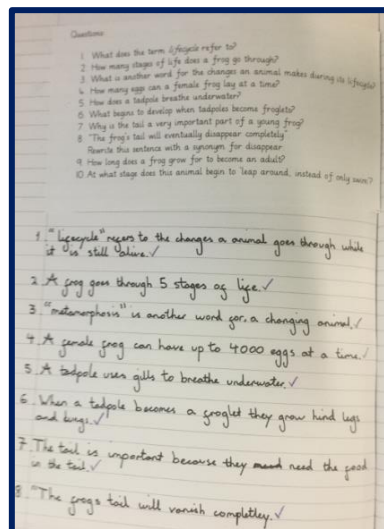 Questions:
1. What does the term lifecycle refer to?
2. How many stages of life does a frog go through?
3. What is another word for the changes an animal makes during its lifecycle?
4. How many eggs can a female frog lay at a time?
5. How does a tadpole breathe underwater?
6. What begins to develop when tadpoles become froglets?
7. Why is the tail a very important part of a young frog?
8. "The frog's tail will eventually disappear completely".
Rewrite this sentence with a synonym for disappear.
9. How long does a frog grow for to become an adult?
10. At what stage does this animal begin to 'leap around, instead of only swim'?
1. "lifecycle" refers to the changes a animal goes through while
it is still alive. ✓
2. A frog goes through 5 stages of life. ✓
3. "metamorphosis" is another word for a changing animal. ✓
4. A female frog can have up to 4000 eggs at a time. ✓
5. A tadpole uses gills to breathe underwater. ✓
6. When a tadpole becomes a froglet they grow hind legs
and lungs. ✓
7. The tail is important because they need the food
in the tail. ✓
8. "The frogs tail will vanish completley. ✓